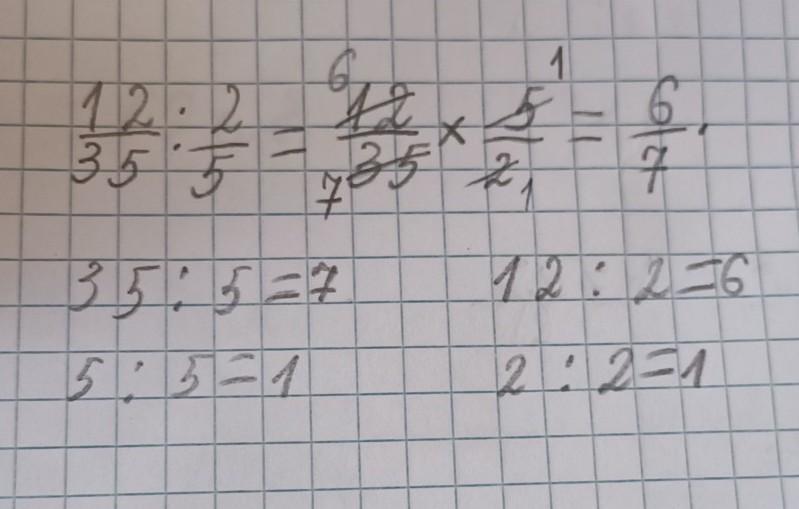 12/35 : 2/5 = 6 12/35 7 × 5/2 1 1 = 6/7.
35 : 5 = 7 12 : 2 = 6
5 : 5 = 1 2 : 2 = 1